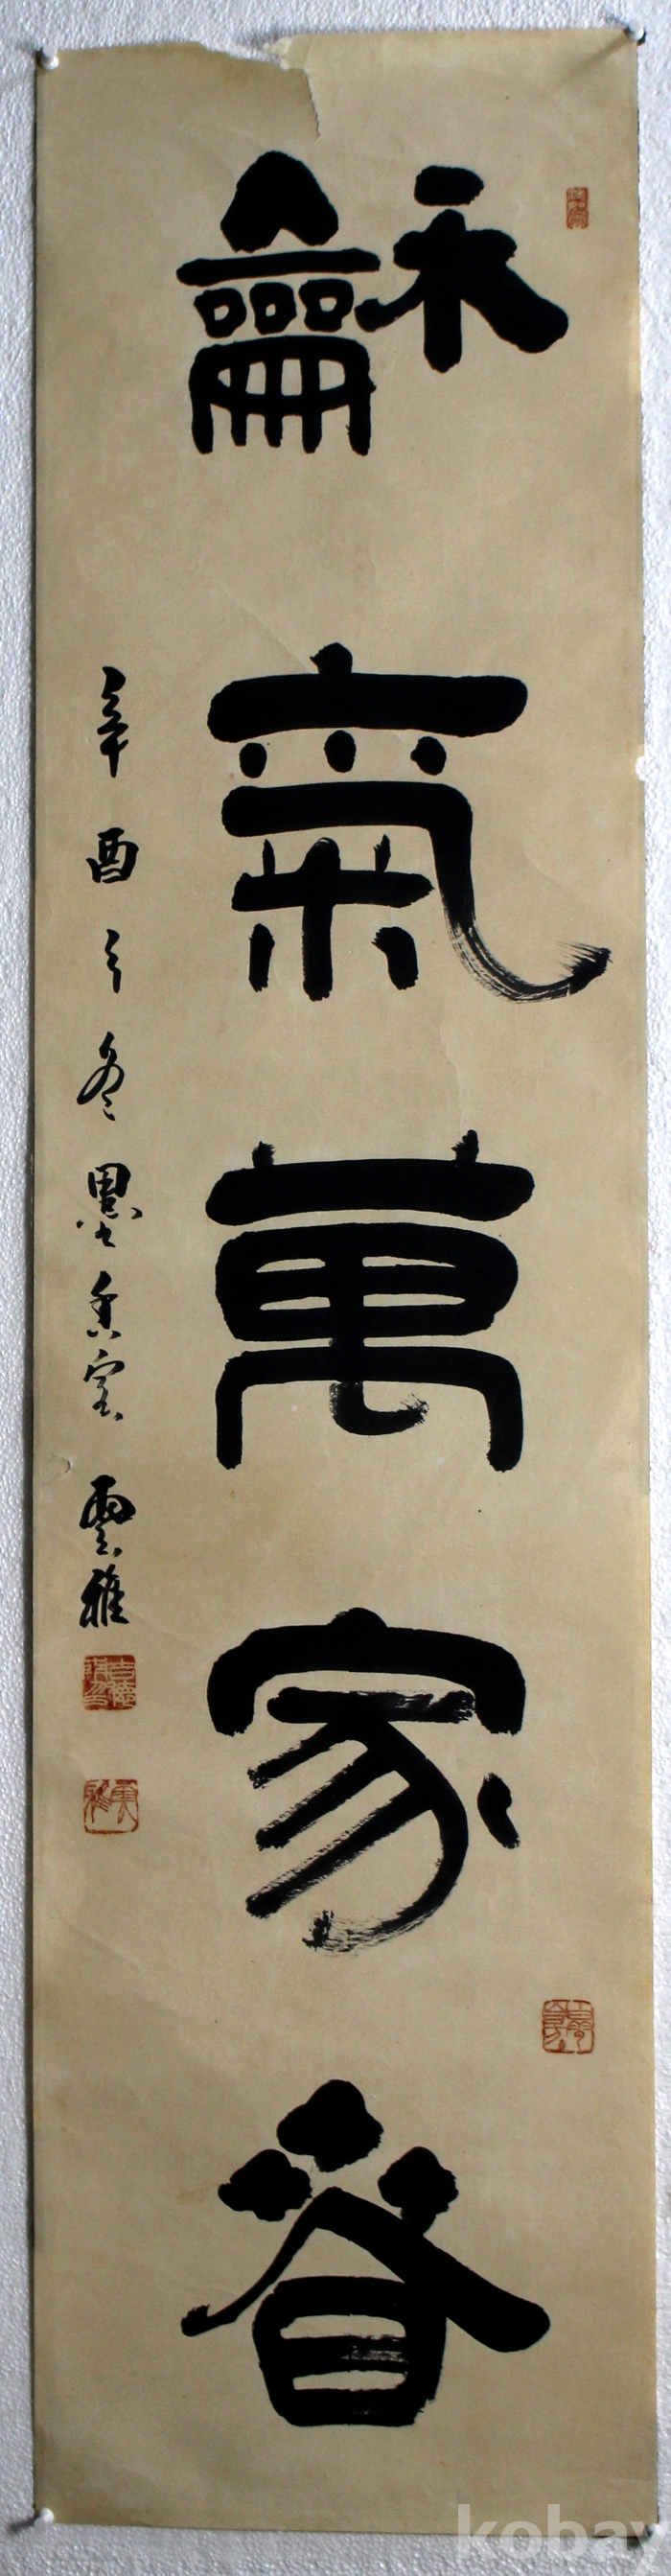 龢氣萬家春
辛酉之冬墨香室 雲雅
kobay